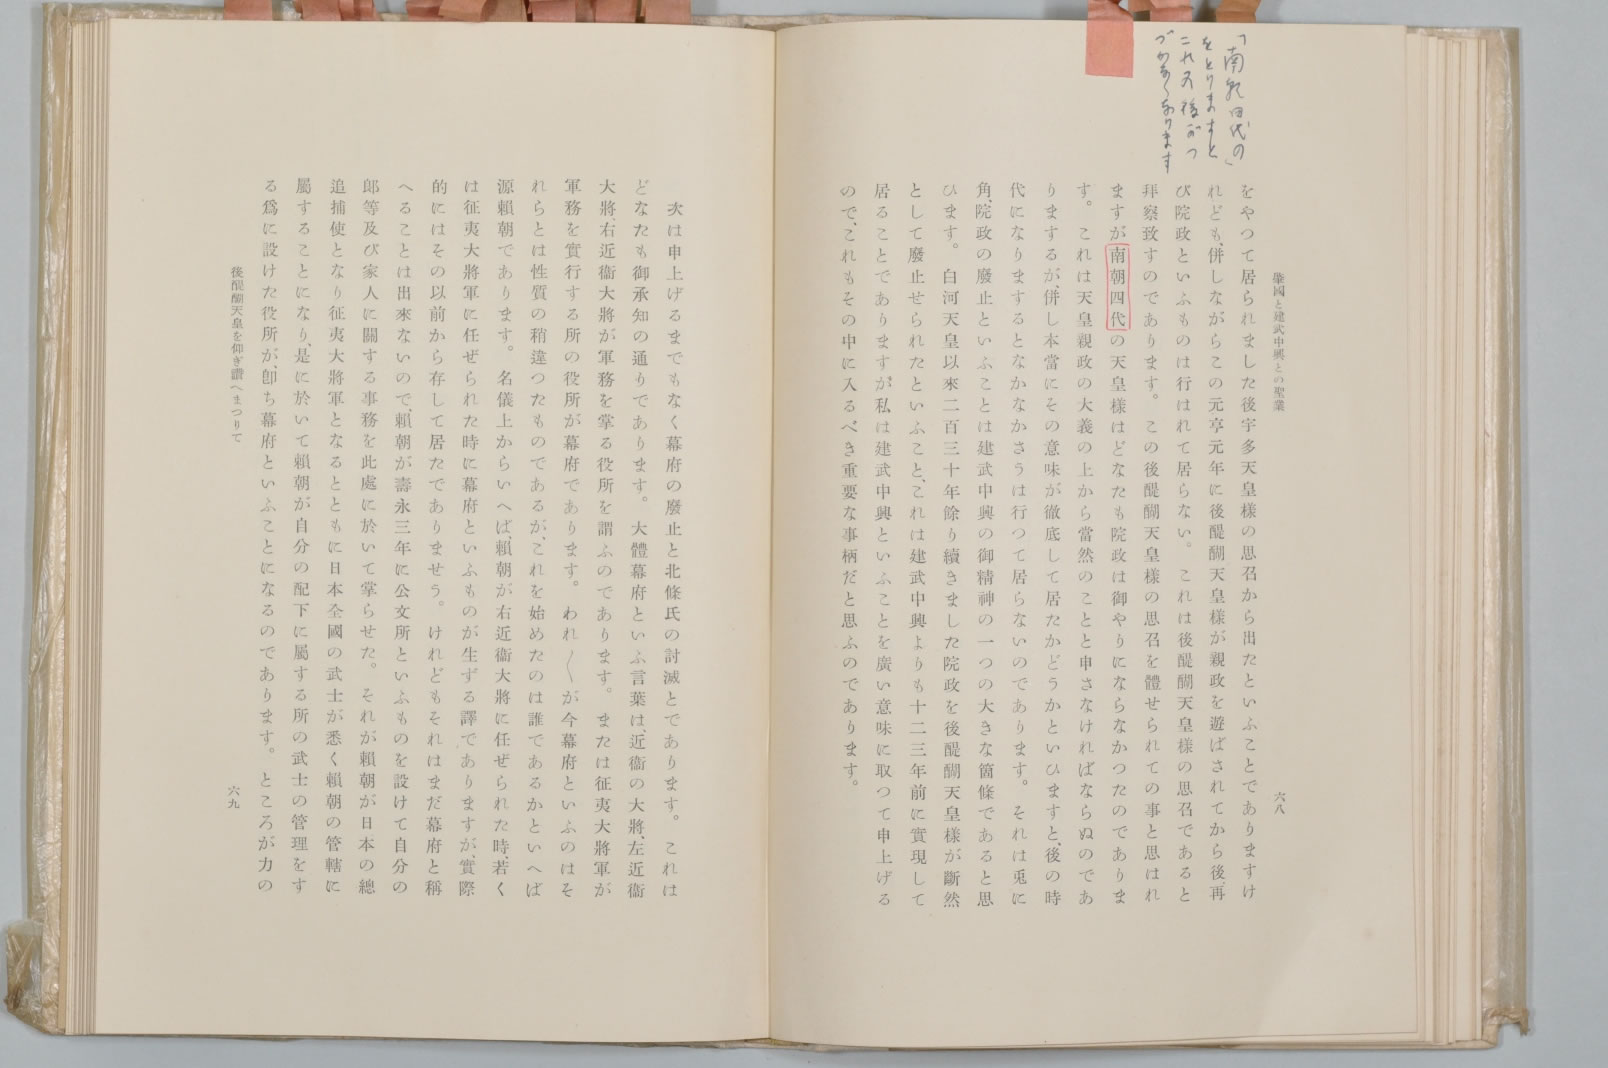 「南朝四代の」
をとりますと
これの後がつ
づかなくなります
肇國と建武中興との聖業
六八
をやつて居られました後宇多天皇樣の思召から出たといふことでありますけ
れども、併しながらこの元亨元年に後醍醐天皇樣が親政を遊ばされてから後、再
び院政といふものは行はれて居らない。これは後醍醐天皇樣の思召であると
拜察致すのであります。この後醍醐天皇樣の思召を體せられての事と思はれ
ますが南朝四代の天皇樣はどなたも院政は御やりにならなかつたのでありま
す。これは天皇親政の大義の上から當然のことと申さなければならぬのであ
りまするが、併し本當にその意味が徹底して居たかどうかといひますと、後の時
代になりまするとなかなかさうは行つて居らないのであります。それは兎に
角、院政の廢止といふことは建武中興の御精神の一つの大きな箇條であると思
ひます。白河天皇以來二百三十年餘り續きました院政を後醍醐天皇樣が斷然
として廢止せられたといふこと、これは建武中興よりも十二三年前に實現して
居ることでありますが、私は建武中興といふことを廣い意味に取つて申上げる
ので、これもその中に入るべき重要な事柄だと思ふのであります。
次は申上げるまでもなく幕府の廢止と北條氏の討滅とであります。これは
どなたも御承知の通りであります。大體幕府といふ言葉は、近衞の大將、左近衞
大將、右近衞大將が軍務を掌る役所を謂ふのであります。または征夷大將軍が
軍務を實行する所の役所が幕府であります。われ〱が今幕府といふのはそ
れらとは性質の稍違つたものであるが、これを始めたのは誰であるかといへば
源賴朝であります。名儀上からいへば、賴朝が右近衞大將に任ぜられた時、若く
は征夷大將軍に任ぜられた時に幕府といふものが生ずる譯でありますが、實際
的にはその以前から存して居たでありませう。けれどもそれはまだ幕府と稱
へることは出來ないので、賴朝が壽永三年に公文所といふものを設けて自分の
郎等及び家人に關する事務を此處に於いて掌らせた。それが賴朝が日本の總
追捕使となり征夷大將軍となるとともに日本全國の武士が悉く賴朝の管轄に
屬することになり、是に於いて賴朝が自分の配下に屬する所の武士の管理をす
る爲に設けた役所が、卽ち幕府といふことになるのであります。ところが力の
後醍醐天皇を仰ぎ讚へまつりて
六九